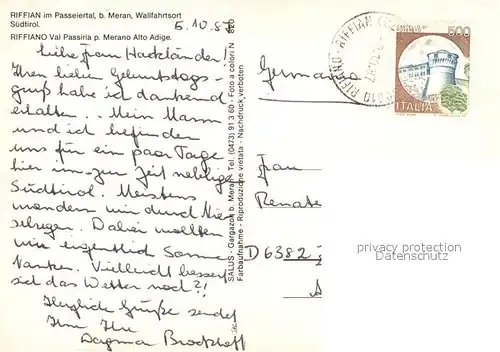 RIFFIAN im Passeiertal, b. Meran, Wallfahrtsort
Südtirol.
RIFFIANO Val Passiria p. Merano Alto Adige.
5.10.87
Liebe Frau Hackländer!
Ihren lieben Geburtstags-
gruß habe ich dankend
erhalten. Mein Mann
und ich befinden
uns für ein paar Tage
hier im zur Zeit nebligen
Südtirol. Meistens
wandern wir durch Nies
elregen. Dabei wollten
wir eigentlich Sonne
tanken. Vielleicht bessert
sich das Wetter noch?!
Herzliche Grüße sendet
Ihnen Ihre
Dagmar Brockhoff
SALUS - Gargazon b. Meran - Tel. (0473) 91 3 60 - Foto a colori N 820
Farbaufnahme - Riproduzione vietata - Nachdruck verboten
Germania
RIFFIANO - RIFFIAN
39010
CASTELLO DI
500
ITALIA
Frau
Renate
D 6382
privacy protection
Datenschutz